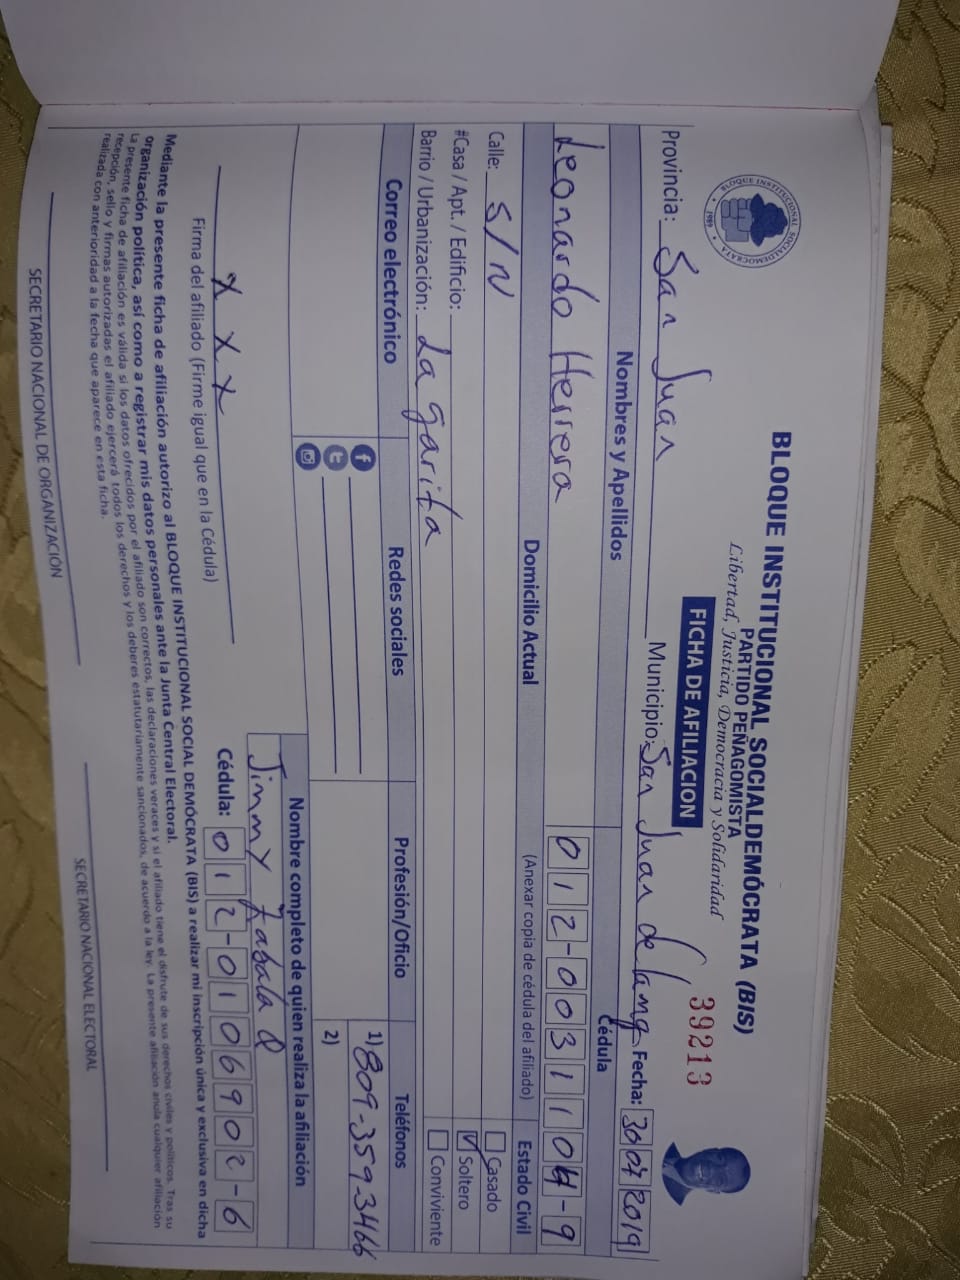 BLOQUE INSTITUCIONAL SOCIALDEMÓCRATA
1989
BLOQUE INSTITUCIONAL SOCIALDEMÓCRATA (BIS)
PARTIDO PEÑAGOMISTA
Libertad, Justicia, Democracia y Solidaridad
FICHA DE AFILIACION
39213
Provincia: San Juan Municipio: San Juan de la Mag Fecha: 30 07 2019
Nombres y Apellidos Cédula
Leonardo Herrera 012-0031104-9
Domicilio Actual (Anexar copia de cédula del afiliado) Estado Civil
Calle: S/N Casado
#Casa / Apt. / Edificio: Soltero
Barrio / Urbanización: La garita Conviviente
Correo electrónico Redes sociales Profesión/Oficio Teléfonos
1) 809-3593466
2)
Nombre completo de quien realiza la afiliación
Jimmy Zabala Q
X X X
Firma del afiliado (Firme igual que en la Cédula)
Cédula: 012-0106902-6
Mediante la presente ficha de afiliación autorizo al BLOQUE INSTITUCIONAL SOCIAL DEMÓCRATA (BIS) a realizar mi inscripción única y exclusiva en dicha
organización política, así como a registrar mis datos personales ante la Junta Central Electoral.
La presente ficha de afiliación es válida si los datos ofrecidos por el afiliado son correctos, las declaraciones veraces y si el afiliado tiene el disfrute de sus derechos civiles y políticos. Tras su
recepción, sello y firmas autorizadas el afiliado ejercerá todos los derechos y los deberes estatutariamente sancionados, de acuerdo a la ley. La presente afiliación anula cualquier afiliación
realizada con anterioridad a la fecha que aparece en esta ficha.
SECRETARIO NACIONAL DE ORGANIZACIÓN SECRETARIO NACIONAL ELECTORAL